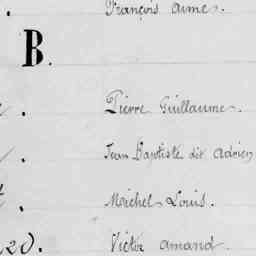 François Aimé.
B.
Pierre Guillaume.
Jean Baptiste dit Adrien
Michel Louis.
Victor Amand.